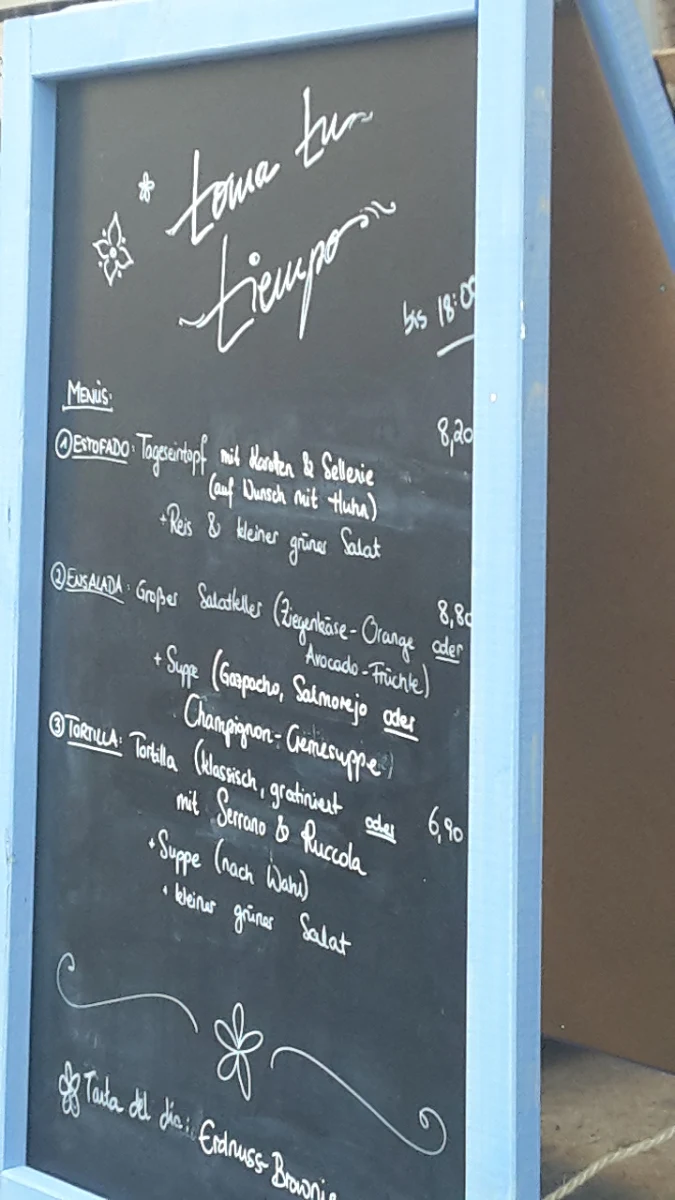 toma tu
tiempo
bis 18:00
MENÜS:
① ESTOFADO: Tageseintopf mit Karotten & Sellerie 8,20
(auf Wunsch mit Huhn)
+ Reis & kleiner grüner Salat
② ENSALADA: Großer Salatteller (Ziegenkäse-Orange oder 8,80
Avocado-Früchte)
+ Suppe (Gazpacho, Salmorejo oder
Champignon-Cremesuppe)
③ TORTILLA: Tortilla (klassisch, gratiniert oder 6,90
mit Serrano & Ruccola
+ Suppe (nach Wahl)
+ kleiner grüner Salat
Tarta del día: Erdnuss-Brownie